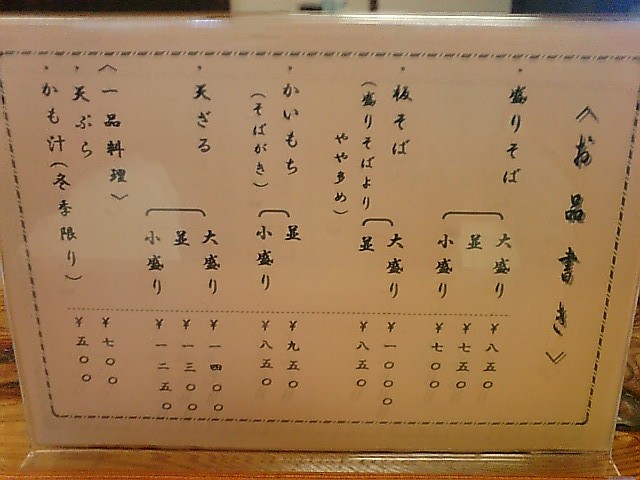 《お品書き》
・盛りそば
大盛り ¥八五〇
並 ¥七五〇
小盛り ¥七〇〇
・板そば
(盛りそばより
やや多め)
大盛り ¥一〇〇〇
並 ¥八五〇
・かいもち
(そばがき)
並 ¥九五〇
小盛り ¥八五〇
・天ざる
大盛り ¥一四〇〇
並 ¥一三〇〇
小盛り ¥一二五〇
〈一品料理〉
・天ぷら ¥七〇〇
・かも汁(冬季限り) ¥五〇〇